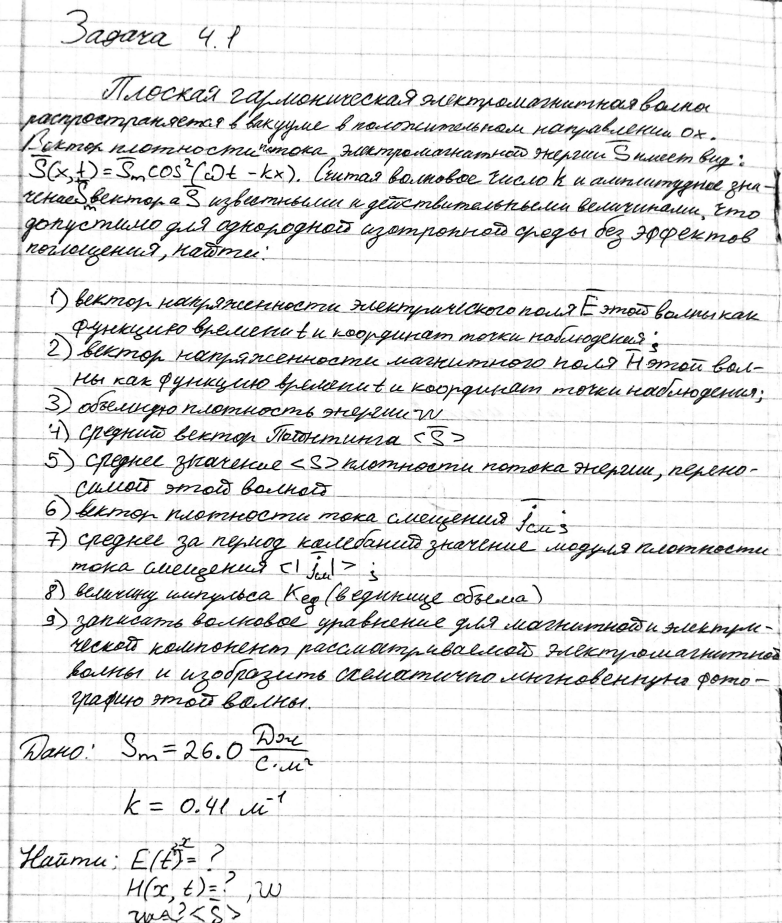 Задача 4.1
Плоская гармоническая электромагнитная волна
распространяется в вакууме в положительном направлении ox.
Вектор плотности потока электромагнитной энергии S̄ имеет вид:
S̄(x,t) = S̄m cos²(ωt - kx). Считая волновое число k и амплитудное зна-
чение S̄m вектора S̄ известными и действительными величинами, что
допустимо для однородной изотропной среды без эффектов
поглощения, найти:
1) вектор напряженности электрического поля Ē этой волны как
функцию времени t и координат точки наблюдения;
2) вектор напряженности магнитного поля H̄ этой вол-
ны как функцию времени t и координат точки наблюдения;
3) объемную плотность энергии w
4) средний вектор Пойнтинга <S̄>
5) среднее значение <S> плотности потока энергии, перено-
симой этой волной
6) вектор плотности тока смещения j̄см;
7) среднее за период колебаний значение модуля плотности
тока смещения <|j̄см|>;
8) величину импульса Kед (в единице объема)
9) записать волновое уравнение для магнитной и электри-
ческой компонент рассматриваемой электромагнитной
волны и изобразить схематично мгновенную фото-
графию этой волны.
Дано: Sm = 26.0 Дж/с·м²
k = 0.41 м⁻¹
Найти: E(t,x) = ?
H(x, t) = ?, w
? <S̄>